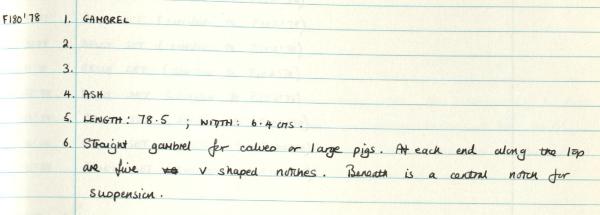 F180'78 1. GAMBREL
2.
3.
4. ASH
5. LENGTH: 78.5 ; WIDTH: 6.4 cms.
6. Straight gambrel for calves or large pigs. At each end along the top
are five V shaped notches. Beneath is a central notch for
suspension.